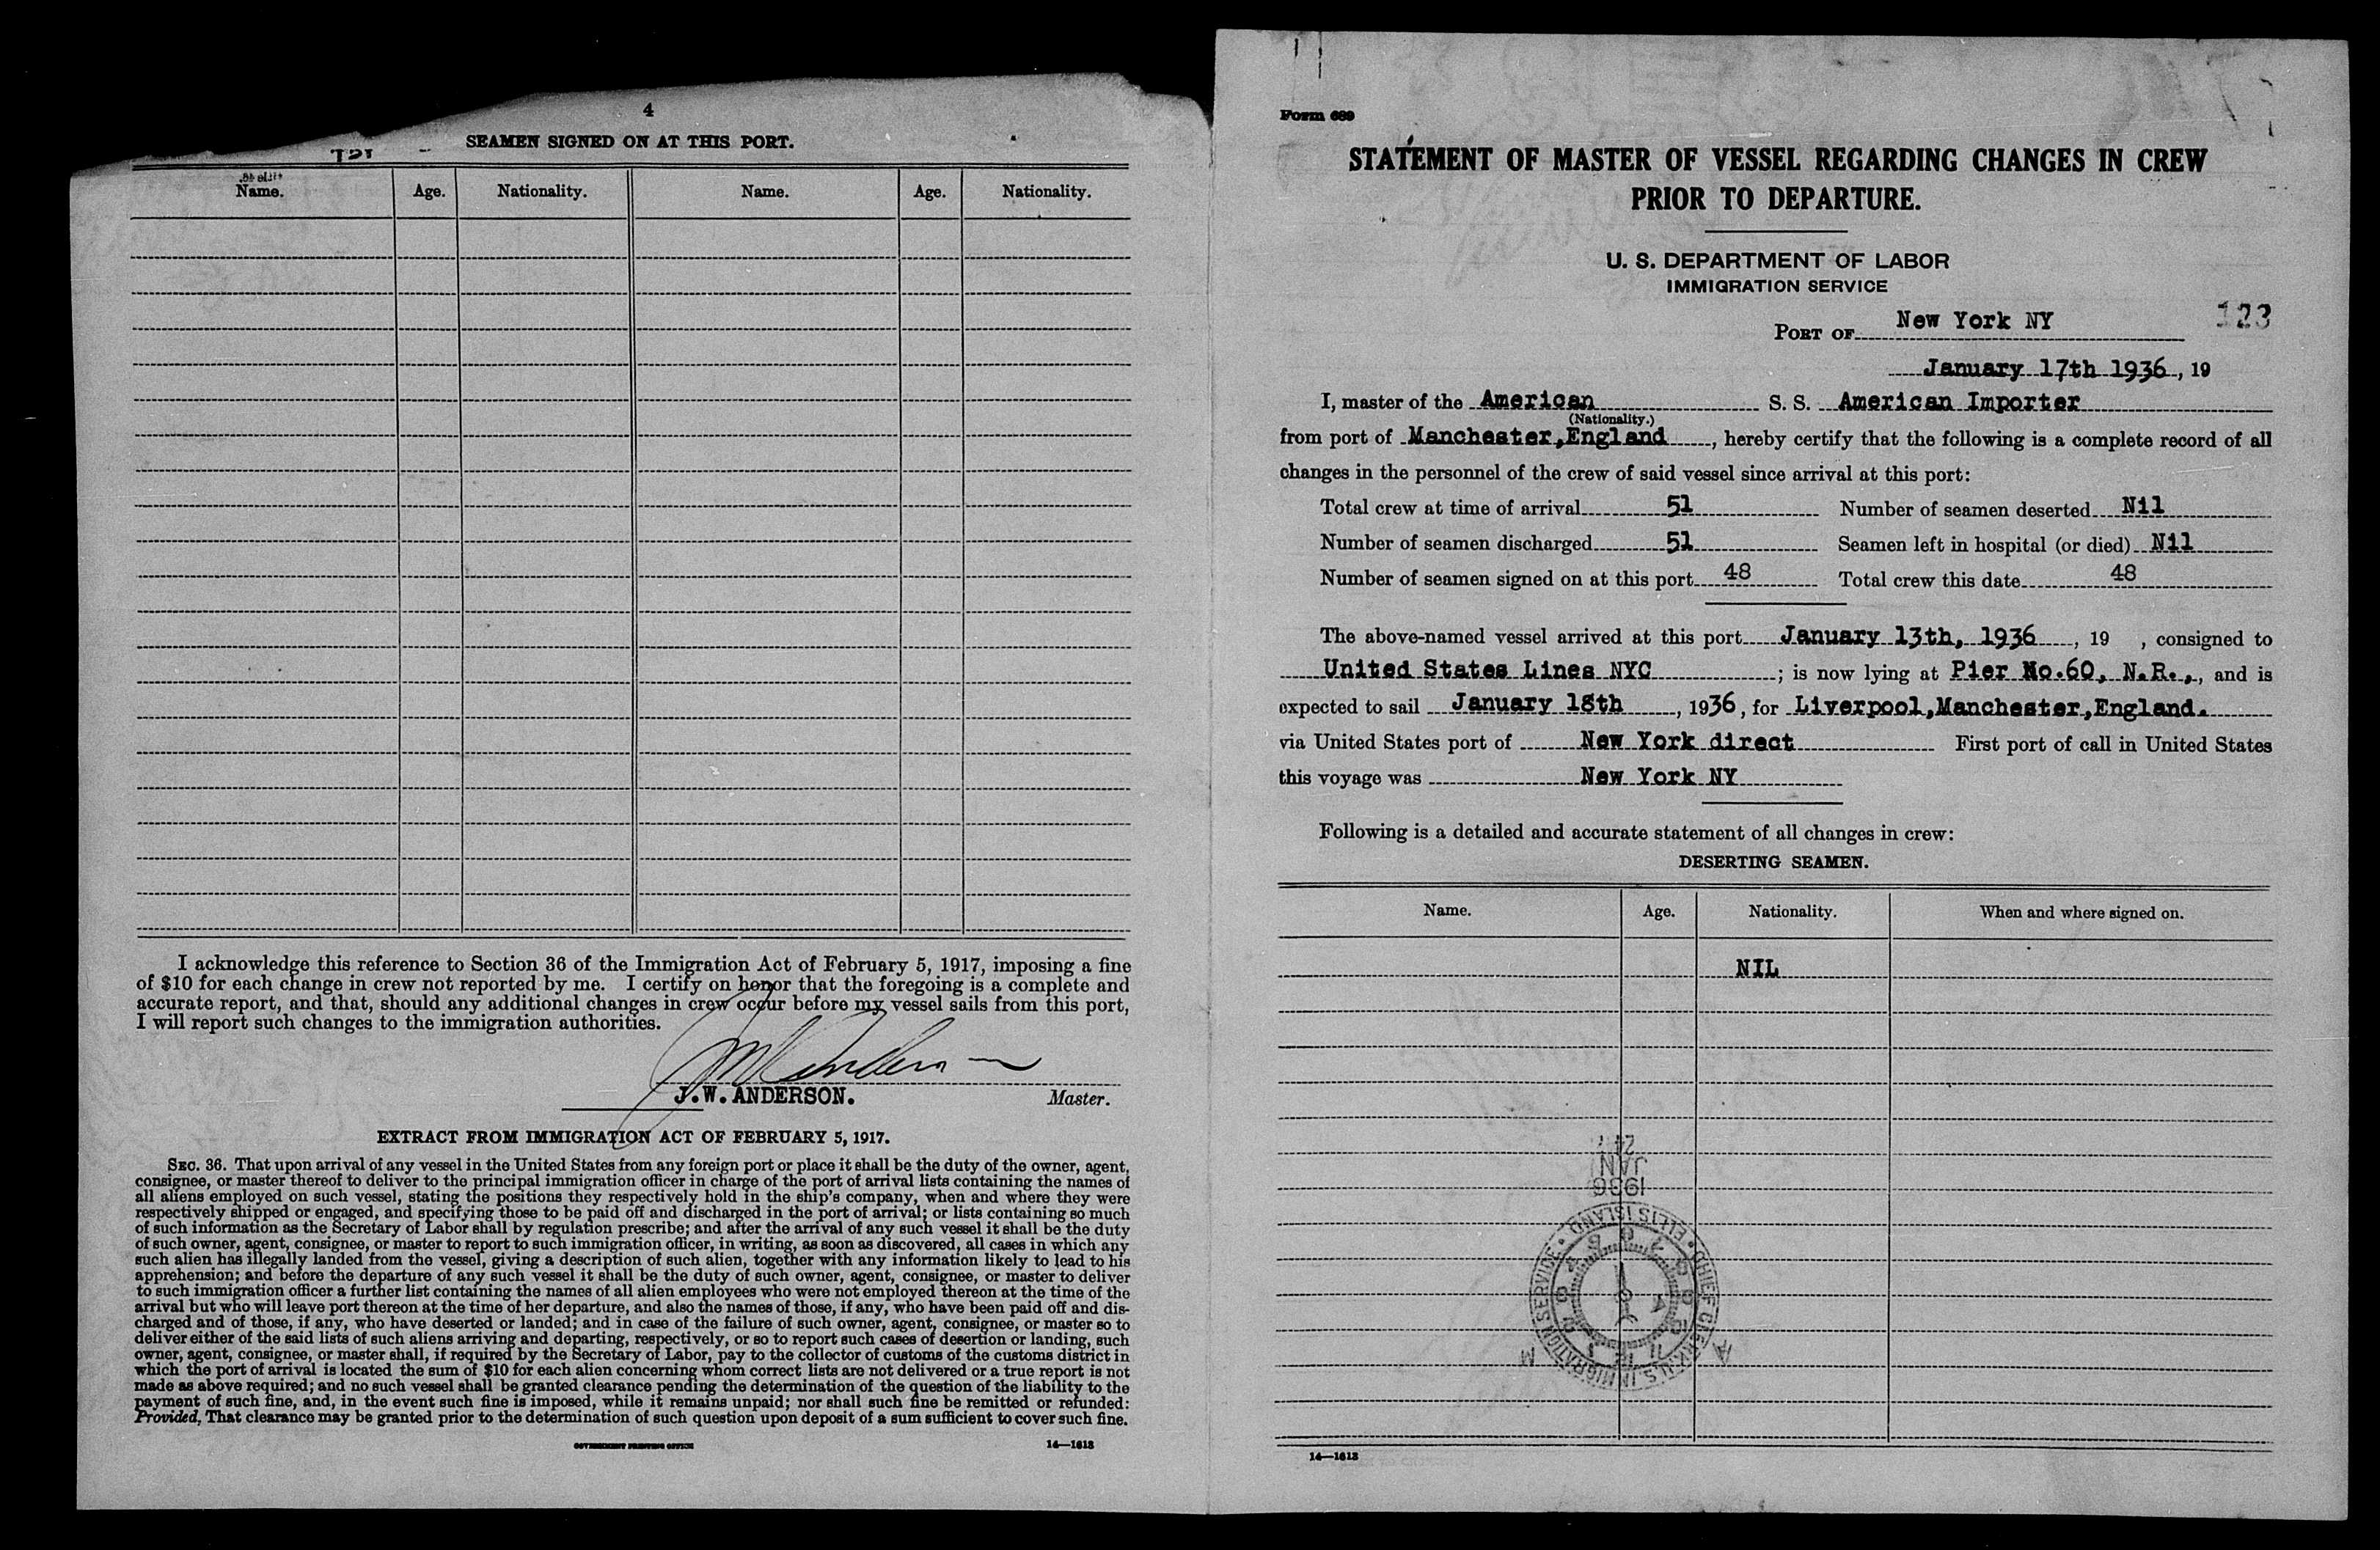 4
SEAMEN SIGNED ON AT THIS PORT.
Name. Age. Nationality. Name. Age. Nationality.
I acknowledge this reference to Section 36 of the Immigration Act of February 5, 1917, imposing a fine
of $10 for each change in crew not reported by me. I certify on honor that the foregoing is a complete and
accurate report, and that, should any additional changes in crew occur before my vessel sails from this port,
I will report such changes to the immigration authorities.
J.W. ANDERSON. Master.
EXTRACT FROM IMMIGRATION ACT OF FEBRUARY 5, 1917.
SEC. 36. That upon arrival of any vessel in the United States from any foreign port or place it shall be the duty of the owner, agent,
consignee, or master thereof to deliver to the principal immigration officer in charge of the port of arrival lists containing the names of
all aliens employed on such vessel, stating the positions they respectively hold in the ship's company, when and where they were
respectively shipped or engaged, and specifying those to be paid off and discharged in the port of arrival; or lists containing so much
of such information as the Secretary of Labor shall by regulation prescribe; and after the arrival of any such vessel it shall be the duty
of such owner, agent, consignee, or master to report to such immigration officer, in writing, as soon as discovered, all cases in which any
such alien has illegally landed from the vessel, giving a description of such alien, together with any information likely to lead to his
apprehension; and before the departure of any such vessel it shall be the duty of such owner, agent, consignee, or master to deliver
to such immigration officer a further list containing the names of all alien employees who were not employed thereon at the time of the
arrival but who will leave port thereon at the time of her departure, and also the names of those, if any, who have been paid off and dis-
charged and of those, if any, who have deserted or landed; and in case of the failure of such owner, agent, consignee, or master so to
deliver either of the said lists of such aliens arriving and departing, respectively, or so to report such cases of desertion or landing, such
owner, agent, consignee, or master shall, if required by the Secretary of Labor, pay to the collector of customs of the customs district in
which the port of arrival is located the sum of $10 for each alien concerning whom correct lists are not delivered or a true report is not
made as above required; and no such vessel shall be granted clearance pending the determination of the question of the liability to the
payment of such fine, and, in the event such fine is imposed, while it remains unpaid; nor shall such fine be remitted or refunded:
Provided, That clearance may be granted prior to the determination of such question upon deposit of a sum sufficient to cover such fine.
GOVERNMENT PRINTING OFFICE 14—1613
Form 689
STATEMENT OF MASTER OF VESSEL REGARDING CHANGES IN CREW
PRIOR TO DEPARTURE.
U. S. DEPARTMENT OF LABOR
IMMIGRATION SERVICE
PORT OF New York NY 123
January 17th 1936, 19
I, master of the American S. S. American Importer
(Nationality.)
from port of Manchester,England, hereby certify that the following is a complete record of all
changes in the personnel of the crew of said vessel since arrival at this port:
Total crew at time of arrival 51 Number of seamen deserted Nil
Number of seamen discharged 51 Seamen left in hospital (or died) Nil
Number of seamen signed on at this port 48 Total crew this date 48
The above-named vessel arrived at this port January 13th, 1936, 19 , consigned to
United States Lines NYC ; is now lying at Pier No.60, N.R.,, and is
expected to sail January 18th, 1936, for Liverpool,Manchester,England.
via United States port of New York direct First port of call in United States
this voyage was New York NY
Following is a detailed and accurate statement of all changes in crew:
DESERTING SEAMEN.
Name. Age. Nationality. When and where signed on.
NIL
JAN
1936
CHIEF CLERK U.S. IMMIGRATION SERVICE • ELLIS ISLAND •
14—1613